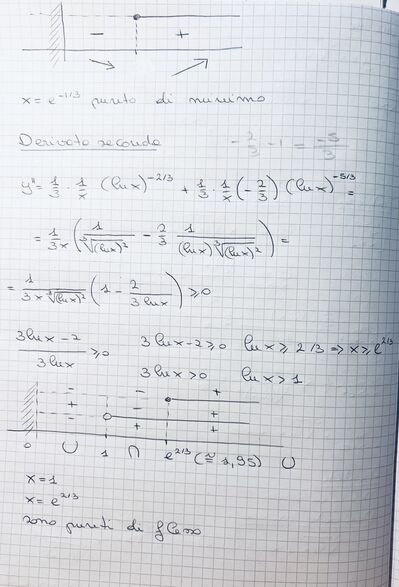 - +
x = e^{-1/3} punto di minimo
Derivata seconda
- 2/3 - 1 = -5/3
y'' = 1/3 · 1/x (lnx)^{-2/3} + 1/3 · 1/x (-2/3) (lnx)^{-5/3} =
= 1/3x ( 1/∛(lnx)² - 2/3 1/((lnx) ∛(lnx)²) ) =
= 1/(3x ∛(lnx)²) ( 1 - 2/(3lnx) ) ≥ 0
(3lnx - 2)/(3lnx) ≥ 0 3lnx - 2 ≥ 0 lnx ≥ 2/3 => x ≥ e^{2/3}
3lnx > 0 lnx > 1
- - +
- + +
+ - +
0 ∪ 1 ∩ e^{2/3} (≅ 1,95) ∪
x = 1
x = e^{2/3}
sono punti di flesso